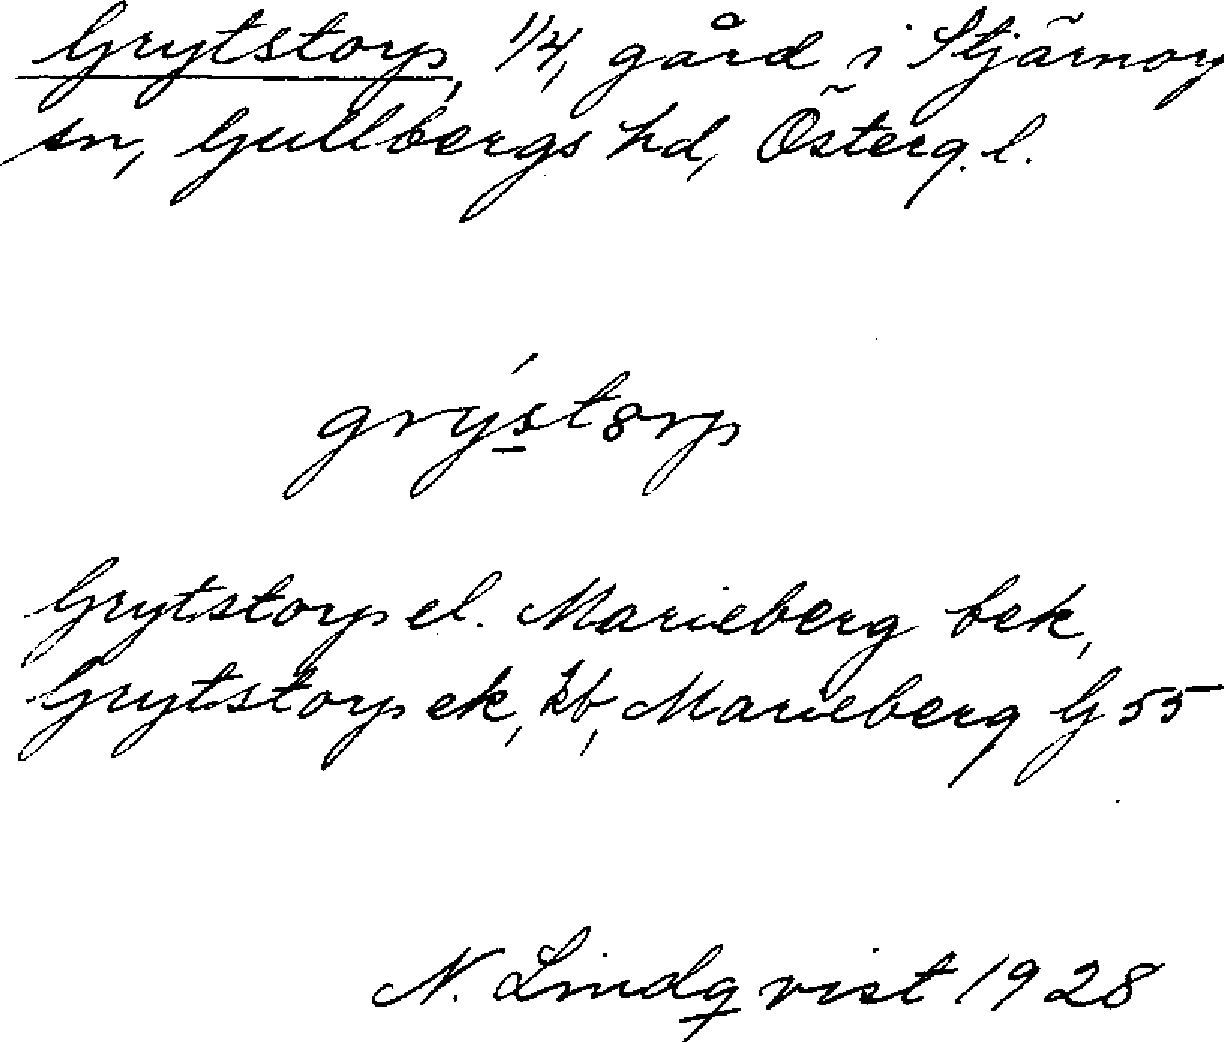 Grytstorp, 1/4, gård i Stjärnorp
sn, Gullbergs hd, Österg. l.
grýst8rp
Grytstorp el. Marieberg bek,
Grytstorp ek, kb, Marieberg G 55
N. Lindqvist 1928